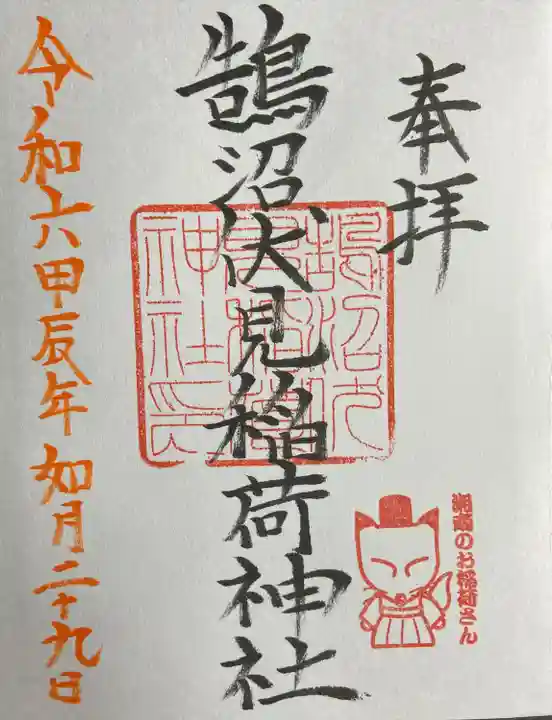 奉拝
鵠沼伏見稲荷神社
鵠沼伏
見稲荷
神社印
湘南のお稲荷さん
令和六甲辰年如月二十九日